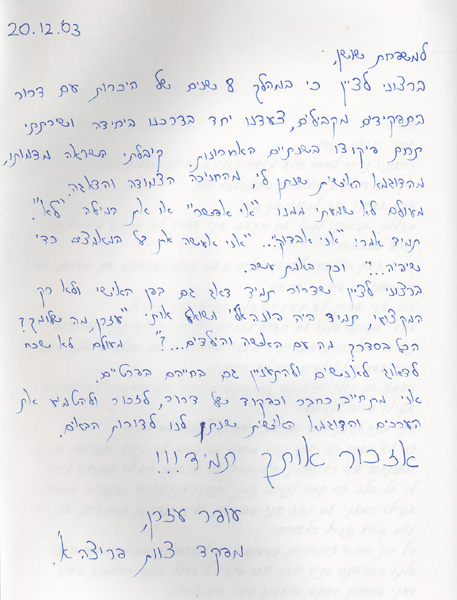 20.12.03
למשפחת שושן,
ברצוני לציין כי במהלך 8 שנים של היכרות עם דרור
בתפקידים מקבילים, צעדנו יחד בדרכנו ביחידה ושירתתי
תחת פיקודו בשנתיים האחרונות. קיבלתי השראה מדמותו,
מהדוגמא האישית שנתן לי, מהחניכה הצמודה והדאגה.
מעולם לא שמעתי ממנו "אי אפשר" או את המילה "לא".
תמיד אמר: "אני אבדוק"... "אני אעשה את כל המאמצים כדי
שיהיה..." וכך באמת עשה.
ברצוני לציין שדרור תמיד דאג גם בפן האישי ולא רק
המקצועי, תמיד היה פונה אלי ושואל אותי: "עזרן, מה שלומך?
הכל בסדר? מה עם האישה והילדים...?" מעולם לא שכח
לדאוג לאנשים ולהתעניין גם בחייהם הפרטיים.
אני מתחייב, כחבר וכפקוד של דרור, לזכור ולהטמיע את
הערכים והדוגמא האישית שנתן לנו לדורות הבאים.
אזכור אותך תמיד!!!
עופר עזרן,
מפקד צוות פריצה א'.